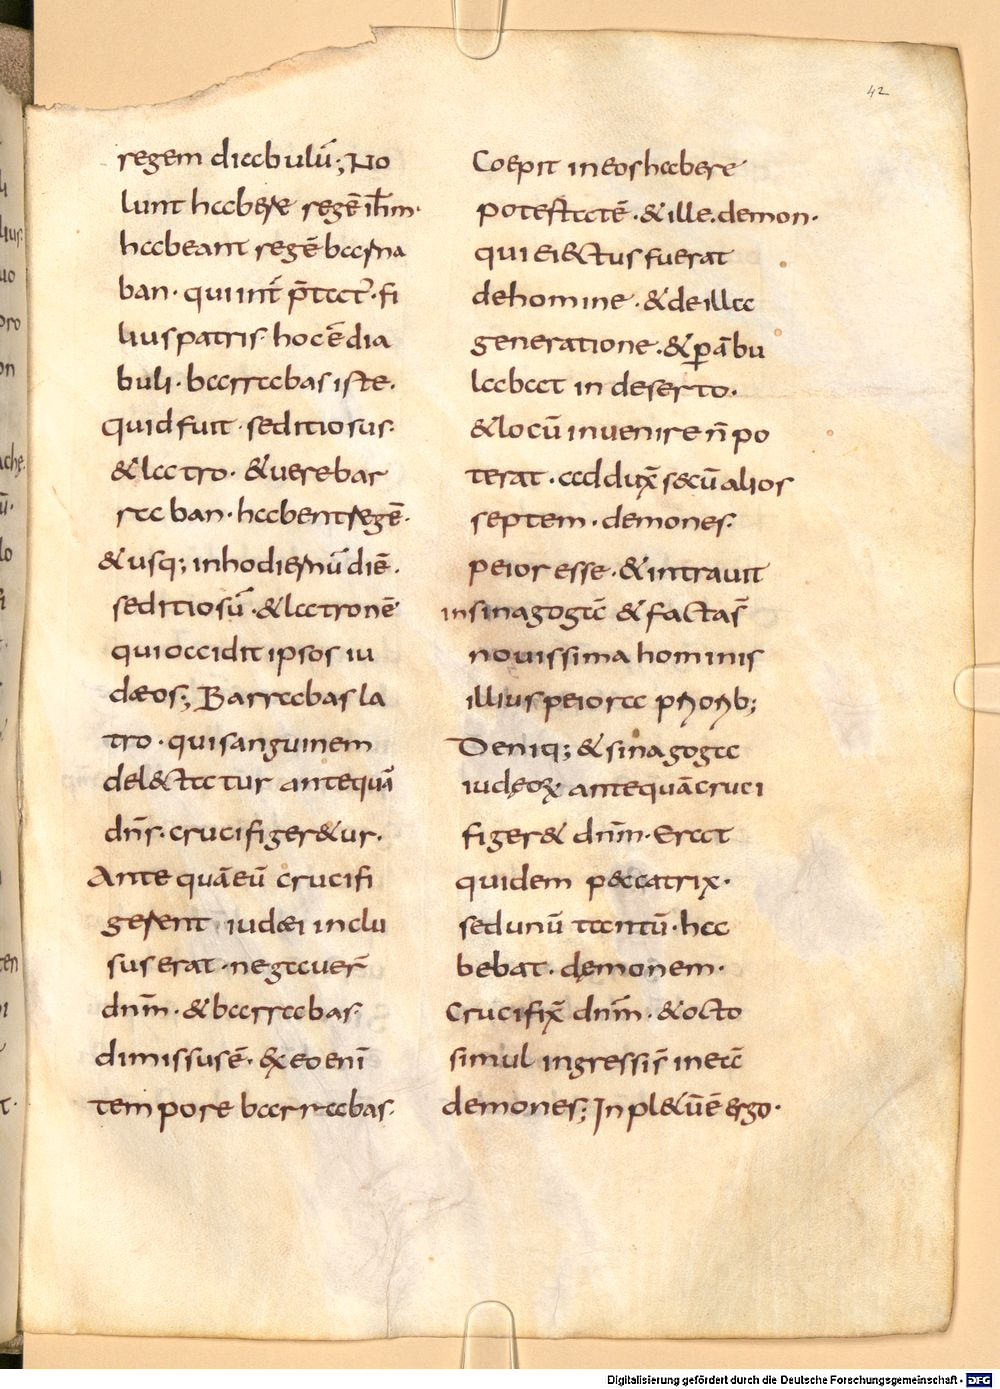 42
regem diabulū; No
lunt habere regē ih̄m·
habeant regē barna
ban· qui int̄ p̄tat᷑· fi
lius patris· hoc ē dia
buli· barrabas iste·
quid fuit· seditiosus·
& latro· & uere bar
raban· habent regē·
& usq; in hodiernū diē·
seditiosū· & latronē
qui occidit ipsos iu
dæos; Barrabas la
tro· qui sanguinem
del&tatur antequā
dn̄s· crucifiger&ur·
Ante quā eū crucifi
gerent iudæi inclu
sus erat· negauer̄
dn̄m· & barrabas·
dimissus ē· &x eo enī
tempore barrabas·
Coepit in eos habere
potestatē· & ille· demon·
qui ei&tus fuerat
de homine· & de illa
generatione· & p̲ābu
labat in deserto·
& locū inuenire n̄ po
terat· addux̄ s&cū alios
septem· demones·
peior esse· & intrauit
in sinagogā & facta s̄
nouissima hominis
illius peiora p̲ꝛ̄orib;
Deniq; & sinagoga
iudęoꝝ antequā cruci
figer& dn̄m· Erat
quidem p&catrix·
sed unū tantū· ha
bebat· dęmonem·
Crucifix̄ dn̄m· & octo
simul ingressi s̄ in eā
demones; In pl& ū ē ergo·
Digitalisierung gefördert durch die Deutsche Forschungsgemeinschaft - DFG